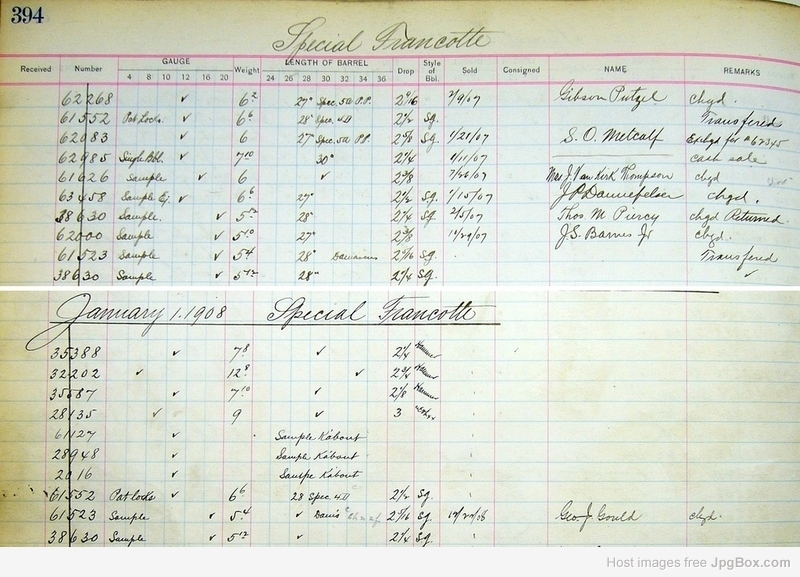 394
Special Francotte
Received Number GAUGE 4 8 10 12 16 20 Weight LENGTH OF BARREL 24 26 28 30 32 34 36 Drop Style of Bbl. Sold Consigned NAME REMARKS
62268 ✓ 6 2 27" Spec. 5a P.P. 2/9/07 Gibson Putzel chgd.
61552 Pat Locks. ✓ 6 6 28" Spec. 4 D 2 1/2 Sg. Transfered
62083 ✓ 6 27" Spec. 5a P.P. Sg. 1/21/07 S. O. Metcalf Exchgd for #67345
62985 Singl Bbl. ✓ 7 10 30" 2 1/4 cash sale
61626 Sample ✓ 6 ✓ 7/26/07 Mrs J. Van Kirk Thompson chgd
63458 Sample Ej. ✓ 6 6 27" 2 1/2 Sg. 1/15/07 chgd.
38630 Sample. ✓ 5 12 28" 2 1/4 Sg. 2/5/07 Thos M Piercy chgd Returned
62000 Sample ✓ 5 10 27" J. S. Barnes Jr chgd.
61523 Sample ✓ 5 4 28" Damascus Sg. Transfered
38630 Sample ✓ 5 12 28" 2 1/4 Sg. ✓
January 1. 1908 Special Francotte
35388 ✓ 7 8 ✓ 2 1/4 Hammer
32202 ✓ 12 8 ✓ Hammer
35587 ✓ 7 10 ✓ 2 1/8 Hammer
28135 ✓ 9 ✓ 3
61127 ✓ Sample Kabout
28948 ✓ Sample Kabout
2016 ✓ Sample Kabout
61552 Pat locks ✓ 6 6 28 Spec 4 D 2 1/2 Sg.
61523 Sample ✓ 5 4 ✓ 2 7/16 Sg. 12/22/08 Geo. J. Gould chgd.
38630 Sample ✓ 5 12 ✓ 2 1/4 Sg.
Host images free at JpgBox.com